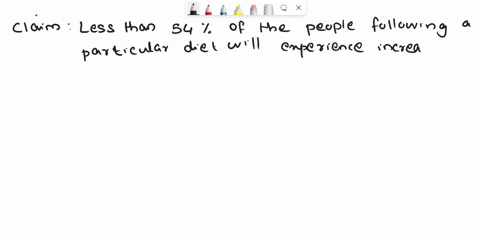 Claim: Less than 54% of the people following a
particular diet will experience increa